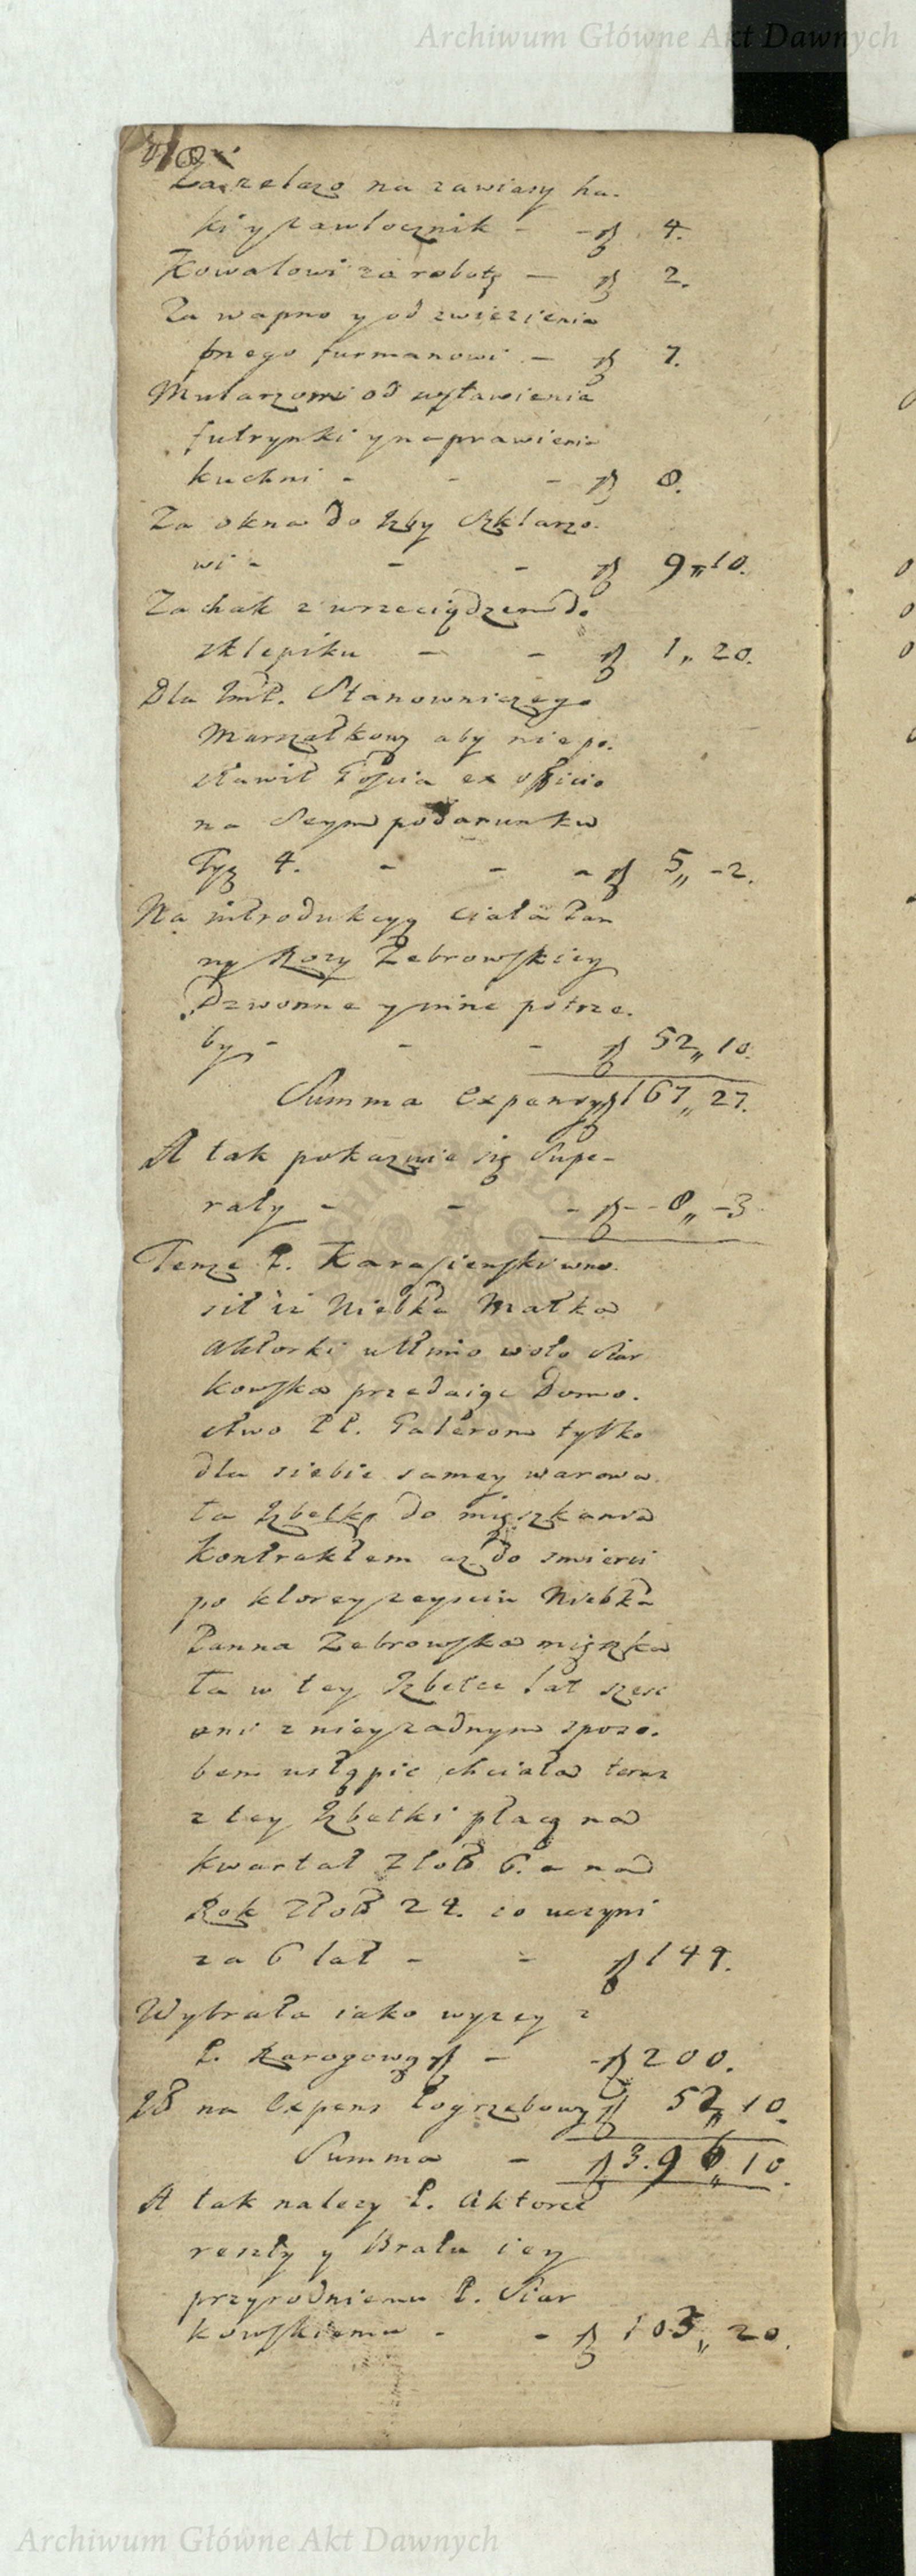 Archiwum Główne Akt Dawnych
Za zelazo na zawiasy ha-
ki y zawłocznik - - zł 4.
Kowalowi za robotę - zł 2.
Za wapno y od zwiezienia
onego furmanowi - zł 7.
Mularzowi od wystawienia
futrynki y naprawienia
kuchni - - - zł 8.
Za okna do Izby Szklarzo-
wi - - - zł 9„10.
Za chak z wrzeciądzem do
sklepiku - - zł 1„20.
Dla ImP. Stanowniczego
Marszałkowy aby nie po-
stawił Gościa ex officio
na Seym podarunku
Tyz 4. - - - zł 5„-2.
Na introdukcyą ciała Pan
ny Rozy Zebrowskiey
Dzwonne y inne potrze-
by - - - zł 52„10.
Summa Expensy zł 167„27.
A tak pokazuie się Supe-
raty - - - zł - - 8„-3
Tenże P. Karasiewski wno-
sił iż Niebka Matka
Aktorki ultimo voto Siar
kowska przedaiąc Domo-
stwo PP. Paterom tylko
dla siebie samey warowa
ła Izbetkę do mięszkania
kontraktem aż do smierci
po ktorey zeysciu Niebka
Panna Zebrowska mięszka
ła w tey Izbetce lat szesc
ani z niey zadnym sposo-
bem ustąpic chciała teraz
z tey Izbetki płacą na
kwartał Złotł 6. a na
Rok Złotł 24. co uczyni
za 6 lat - - zł 144.
Wybrała iako wyzey z
P. Rarogową zł - - zł 200.
It na Expens Pogrzebowy zł 52„10.
Summa - zł 3.96„10.
A tak nalezy P. Aktorce
reszty y Bratu iey
przyrodniemu P. Siar
kowskiemu - - zł 103„20.
Archiwum Główne Akt Dawnych